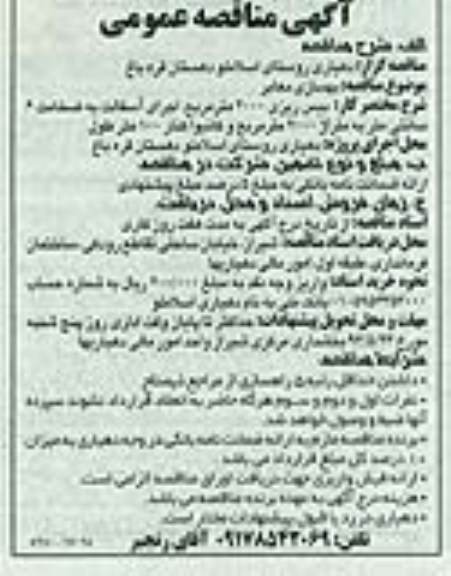 آگهی مناقصه عمومی
الف: شرح مناقصه
مناقصه گزار: دهیاری روستای اسلاملو دهستان قره باغ
موضوع مناقصه: بهسازی معابر
شرح مختصر کار: بیس ریزی ۲۰۰۰ مترمربع، اجرای آسفالت به ضخامت ۶
سانتی متر به متراژ ۲۰۰۰ مترمربع و کانیوا کنار ۱۰۰ متر طول
محل اجرای پروژه: دهیاری روستای اسلاملو دهستان قره باغ
ب: مبلغ و نوع تضمین شرکت در مناقصه:
ارائه ضمانت نامه بانکی به مبلغ ۵ درصد مبلغ پیشنهادی
ج: زمان فروش اسناد و محل دریافت:
اسناد مناقصه: از تاریخ درج آگهی به مدت هفت روز کاری
محل دریافت اسناد مناقصه: شیراز، خیابان ساحلی تقاطع رودکی، ساختمان
فرمانداری، طبقه اول، امور مالی دهیاریها
نحوه خرید اسناد: واریز وجه نقد به مبلغ ریال به شماره حساب
بانک ملی به نام دهیاری اسلاملو
مهلت و محل تحویل پیشنهادات: حداکثر تا پایان وقت اداری روز پنج شنبه
مورخ بخشداری مرکزی شیراز واحد امور مالی دهیاریها
شرایط مناقصه:
• داشتن حداقل رتبه ۵ راهسازی از مراجع ذیصلاح
• نفرات اول و دوم و سوم هرگاه حاضر به انعقاد قرارداد نشوند سپرده
آنها ضبط و وصول خواهد شد.
• برنده مناقصه ملزم به ارائه ضمانت نامه بانکی در وجه دهیاری به میزان
۱۰ درصد کل مبلغ قرارداد می باشد.
• ارائه فیش واریزی جهت دریافت اوراق مناقصه الزامی است.
• هزینه درج آگهی به عهده برنده مناقصه می باشد.
• دهیاری در رد یا قبول پیشنهادات مختار است.
تلفن: ۰۹۱۷۸۵۴۳۰۶۹ آقای رنجبر